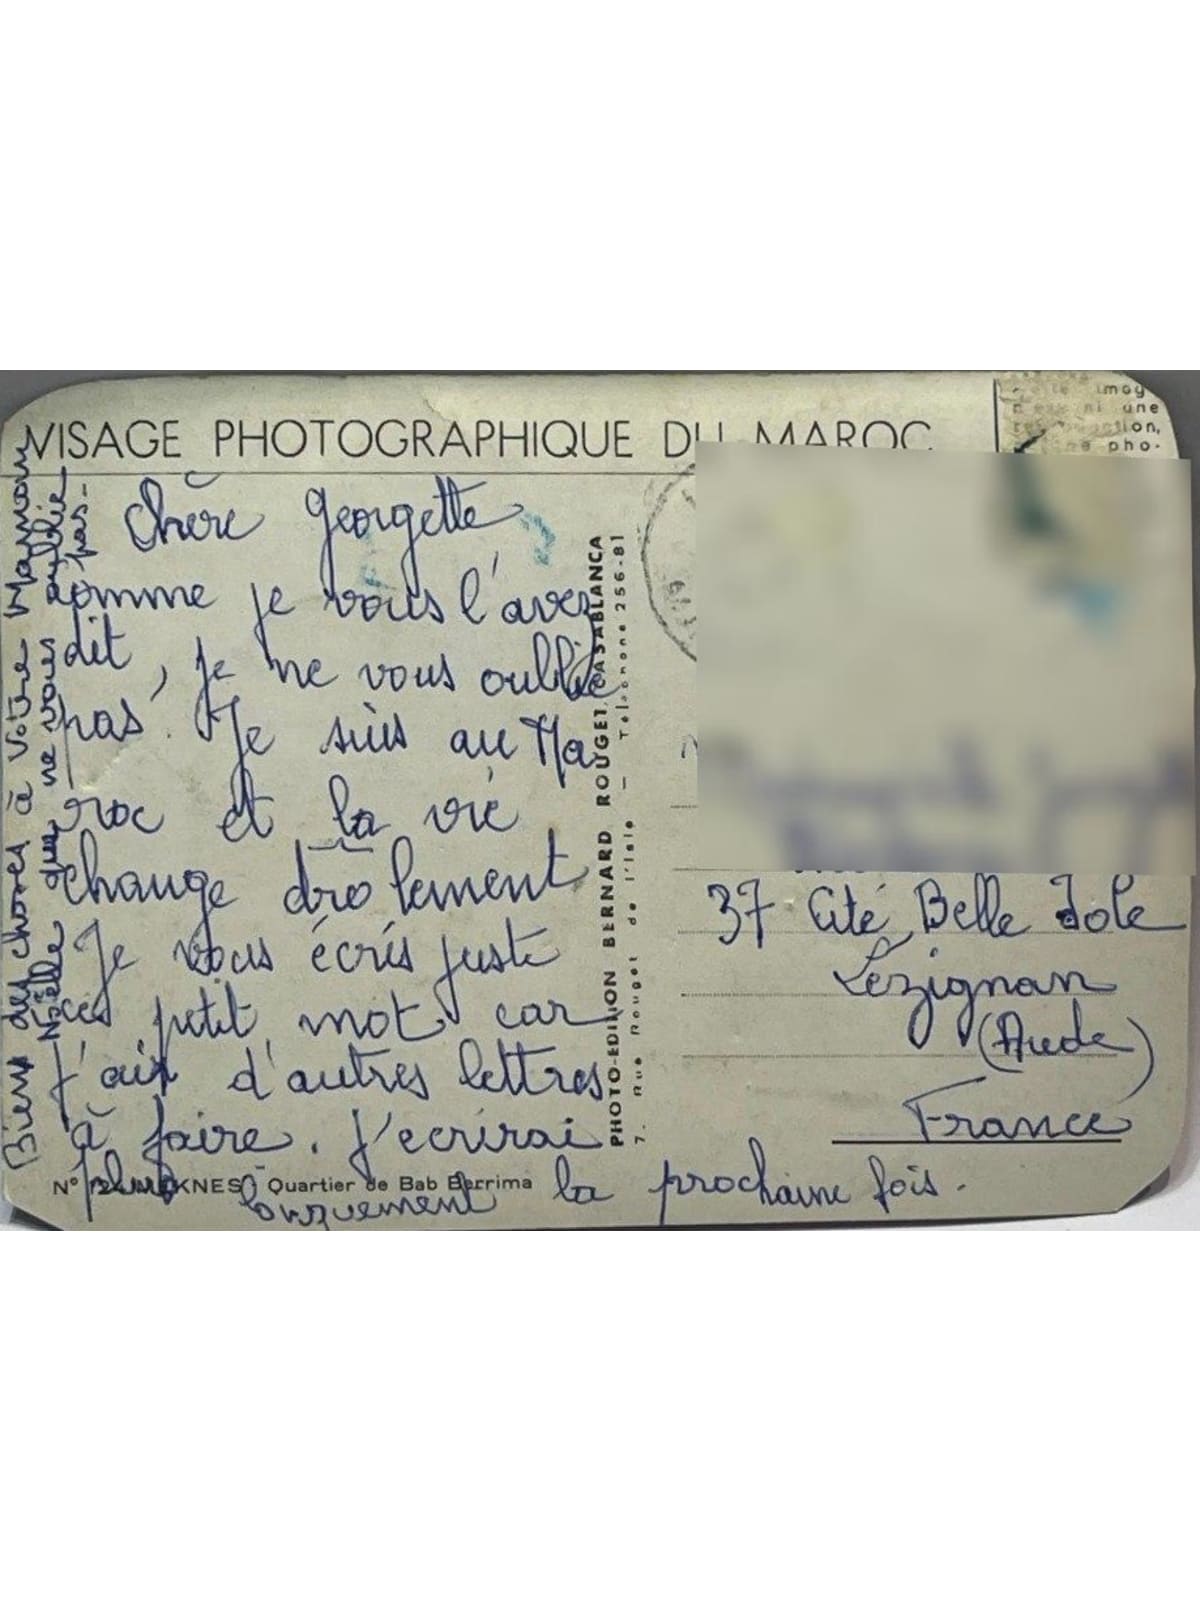 VISAGE PHOTOGRAPHIQUE DU MAROC
imag
ni une
pho-
Chère Georgette
comme je vous l'avez
dit, je ne vous oublie
pas. Je suis au Ma
roc et la vie
change drôlement
Je vous écris juste
ce petit mot car
j'ai d'autres lettres
à faire. J'ecrirai
plus longuement la prochaine fois.
Bien des choses à votre Maman
Noëlle qui ne vous oublie
pas-
N° MEKNES - Quartier de Bab Berrima
PHOTO-EDITION BERNARD ROUGET, CASABLANCA
7. Rue Rouget de l'Isle — Telephone 256-81
37 Cité Belle Iole
Lezignan
(Aude)
France